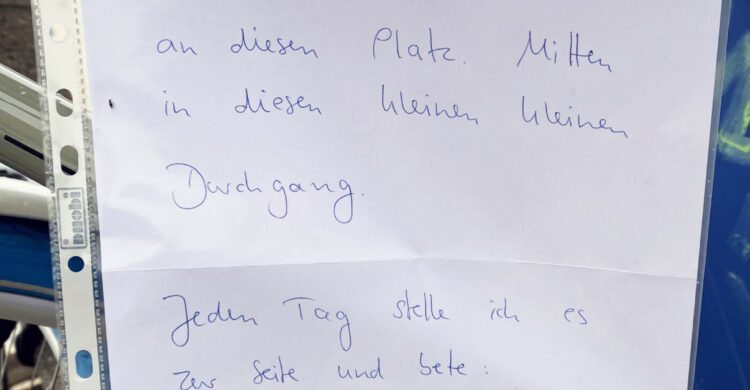 an diesen Platz. Mitten
in diesen kleinen kleinen
Durchgang.
Jeden Tag stelle ich es
zur Seite und bete: